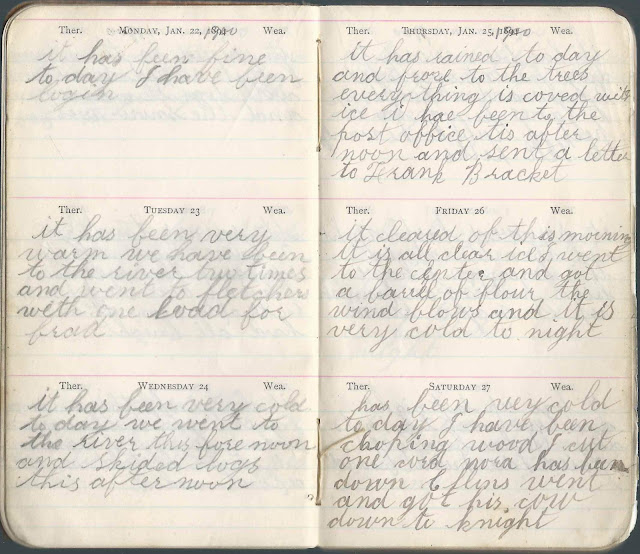 Ther. MONDAY, JAN. 22, 1894 1900 Wea.
it has been fine
to day I have been
login
Ther. TUESDAY 23 Wea.
it has been very
warm we have been
to the river two times
and went to fletchers
with one load for
brad
Ther. WEDNESDAY 24 Wea.
it has been very cold
to day we went to
the river this fore noon
and skided logs
this after noon
Ther. THURSDAY, JAN. 25, 1894 1900 Wea.
it has rained to day
and froze to the trees
every thing is coved with
ice i hae been to the
post office tis after
noon and sent a letter
to Frank Bracket
Ther. FRIDAY 26 Wea.
it cleared of this morning
it is all clear ice went
to the center and got
a barel of flour the
wind blows and it is
very cold to night
Ther. SATURDAY 27 Wea.
has been very cold
to day I have been
choping wood I cut
one cord nora has been
down went
and got his cow
down to knight